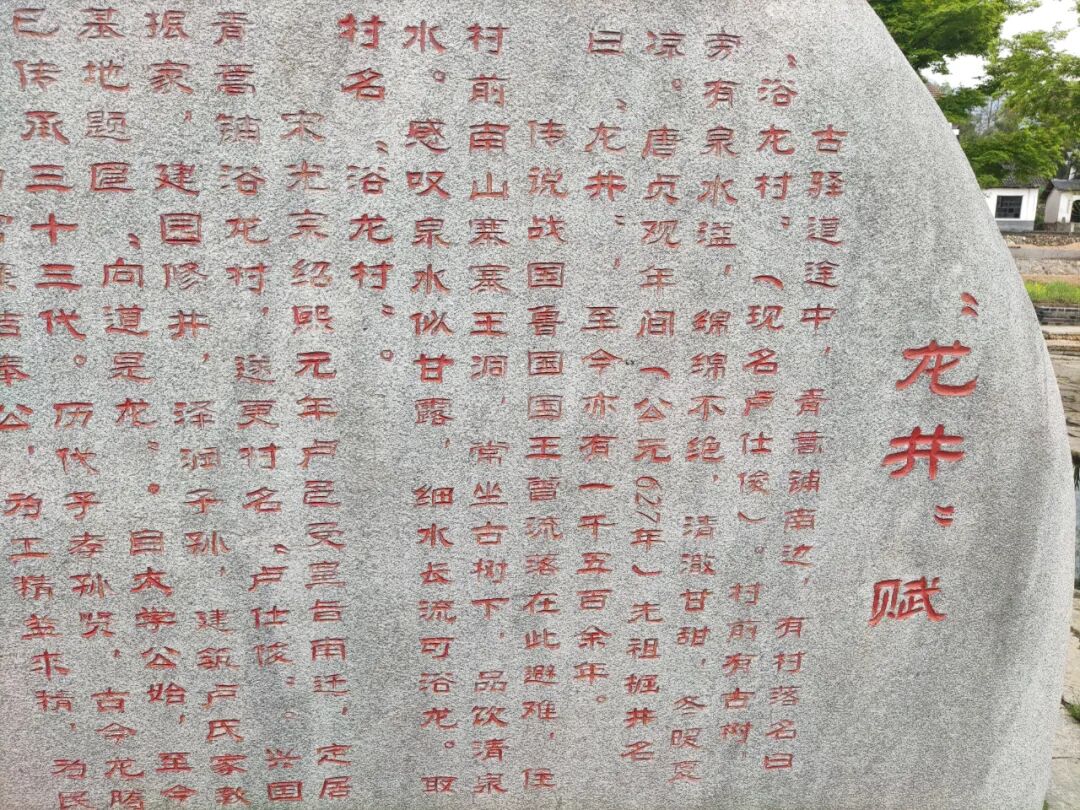 “龙井”赋
古驿道途中，青蒿铺南边，有村落名曰
“浴龙村”（现名卢仕俊）。村前有古树，
旁有泉水溢，绵绵不绝，清澈甘甜，冬暖夏
凉。唐贞观年间（公元627年）先祖掘井名
曰“龙井”，至今亦有一千五百余年。
传说战国鲁国国王曾流落在此避难，住
村前南山寨寨王洞，常坐古树下，品饮清泉
水。感叹泉水似甘露，细水长流可浴龙。取
村名“浴龙村”。
宋光宗绍熙元年卢邑受皇旨南迁，定居
青蒿铺浴龙村，遂更村名“卢仕俊”。兴国
振家，建园修井，泽润子孙，建筑卢氏家敦
基地题匾“向道是龙”。自太学公始，至今
已传承三十三代。历代子孝孙贤，古今龙腾
奉公，为工精益求精，为民